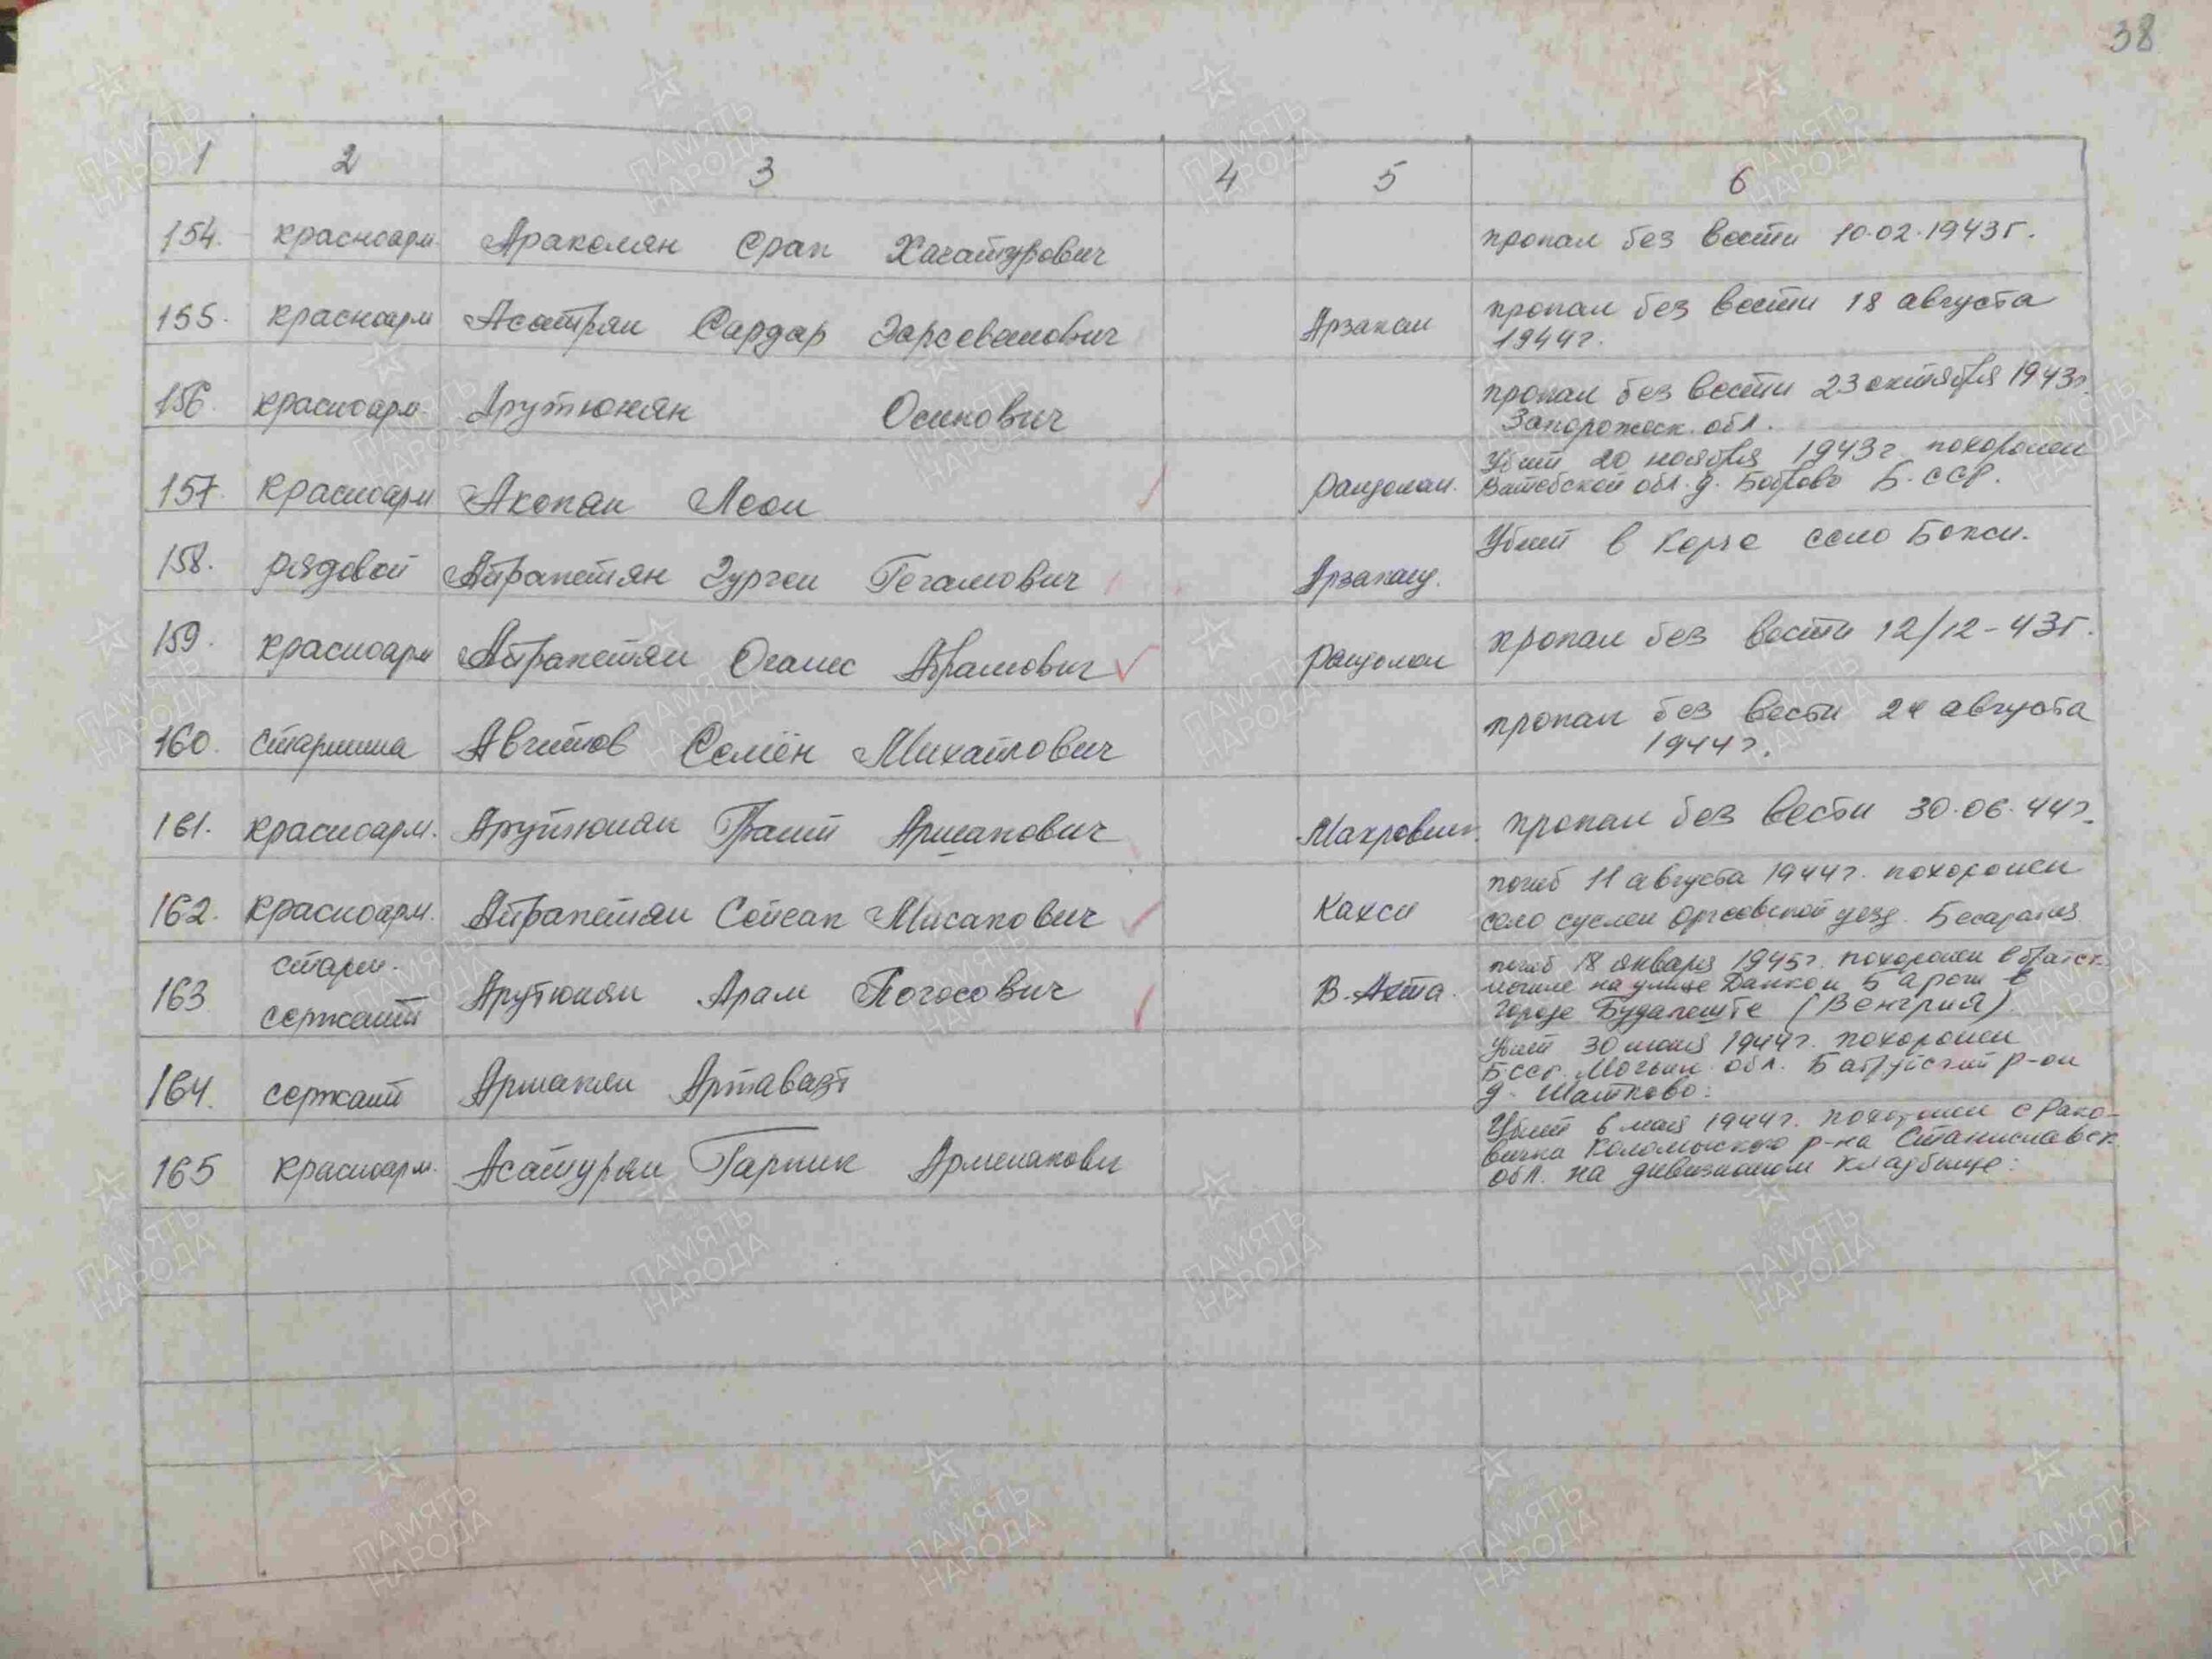 38
1 2 3 4 5 6
154. красноарм. Аракелян Срап Хачатурович пропал без вести 10.02.1943г.
155. красноарм Асатрян Сардар Зарсеванович Арзакан пропал без вести 18 августа
1944г.
156. красноарм. Арутюнян Осипович пропал без вести 23 октября 1943г.
Запорожск. обл.
157. красноарм Акопян Леон Рандамал. Убит 20 ноября 1943г. похоронен
Витебской обл. д. Боброво Б.ССР.
158. рядовой Айрапетян Гурген Гегамович Арзаканд. Убит в Корче село Бокси.
159. красноарм Айрапетян Оганес Абрамович пропал без вести 12/12-43г.
160. старшина Авгитов Семён Михайлович пропал без вести 24 августа
1944г.
161. красноарм. Арутюнян Грант Аршакович Макровин. пропал без вести 30.06.44г.
162. красноарм. Айрапетян Сейсап Мисакович Кахси погиб 11 августа 1944г. похоронен
село суслен Оргеевской уезд. Бесарабия
163 старш.
сержант Арутюнян Арам Погосович В.Ахта. погиб 18 января 1945г. похоронен в братск.
могиле на улице Данкои Б арош в
городе Будапеште (Венгрия)
164. сержант Аршакян Артавазт Убит 30 июня 1944г. похоронен
БССР. Могвин. обл. Бабруйский р-он
д. Шатково:
165 красноарм. Асатурян Гарник Арменакови Убит 6 мая 1944г. похоронен с Рако-
вичка Коломыского р-на Станиславск.
обл. на дивизионом кладбище:
ПАМЯТЬ
НАРОДА